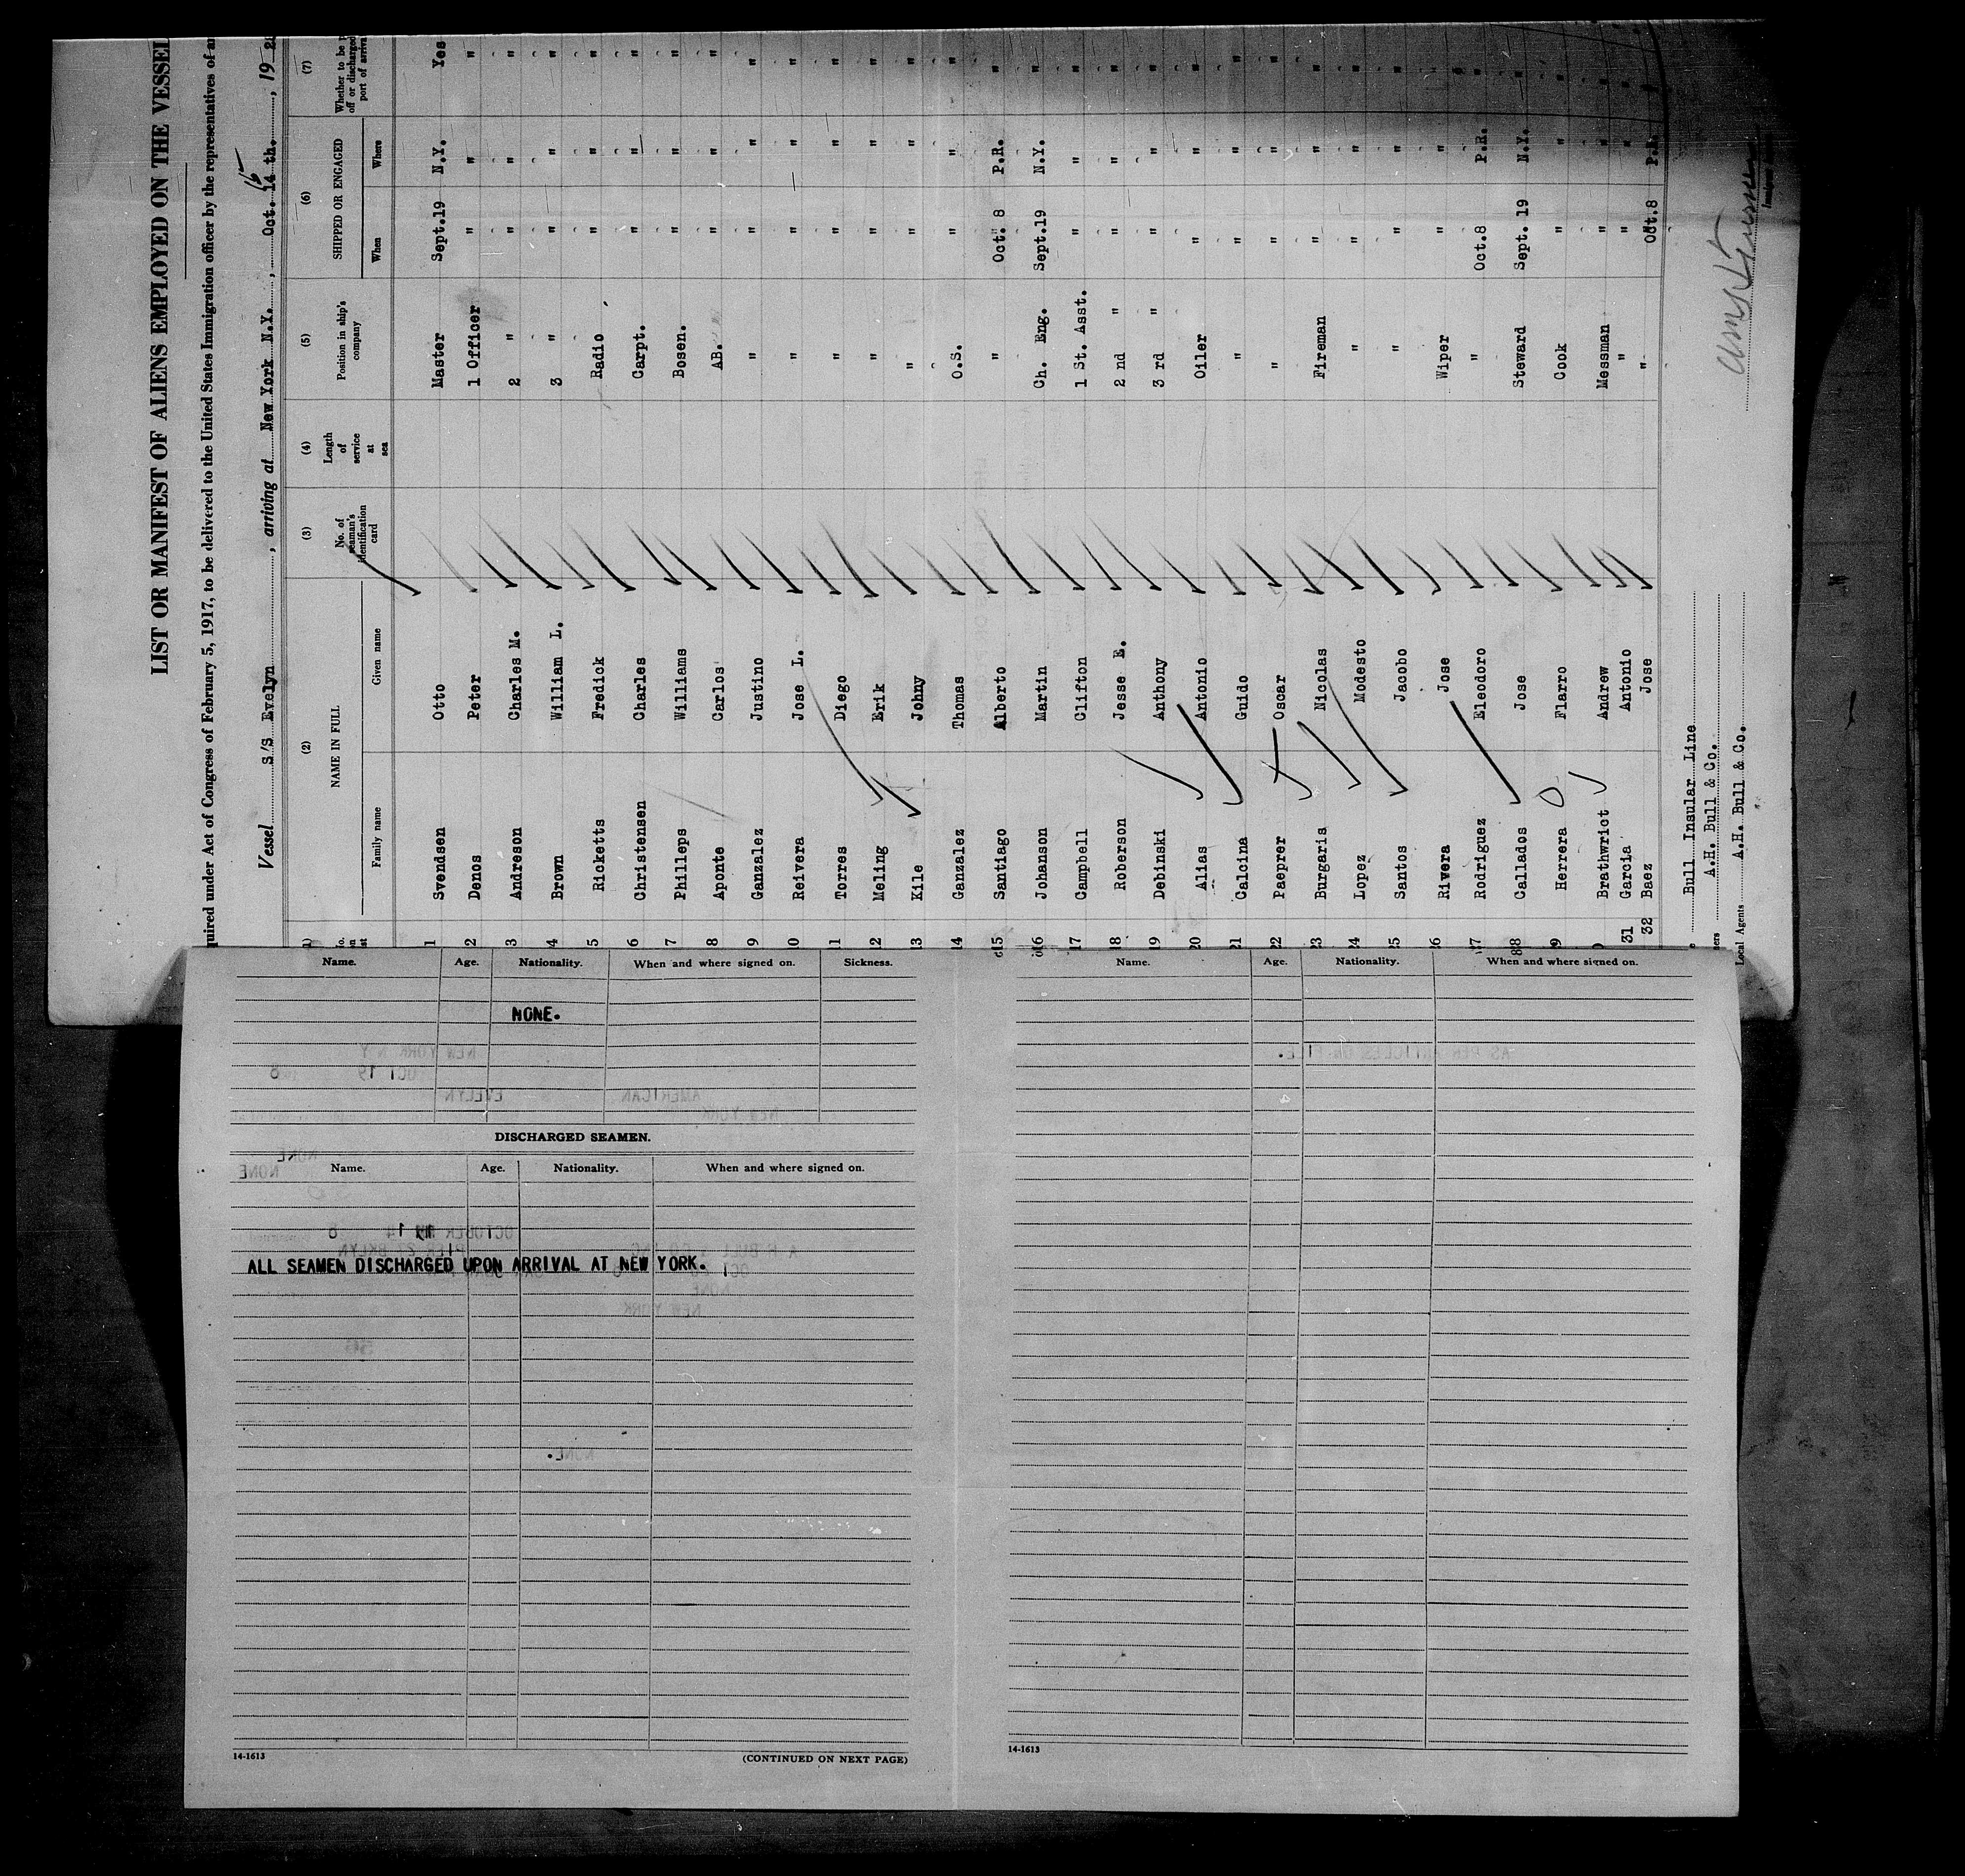 LIST OR MANIFEST OF ALIENS EMPLOYED ON THE VESSEL
quired under Act of Congress of February 5, 1917, to be delivered to the United States Immigration officer by the representatives of
Vessel S/S Evelyn, arriving at New York N.Y., Oct. 14 th., 19
(2) (3) (4) (5) (6) (7)
NAME IN FULL No. of seaman's identification card Length of service at sea Position in ship's company SHIPPED OR ENGAGED Whether to be off or discharged port of arrival
Family name Given name When Where
1 Svendsen Otto Master Sept.19 N.Y. Yes
2 Denos Peter 1 Officer " " "
3 Andreson Charles M. 2 " " " "
4 Brown William L. 3 " " " "
5 Ricketts Fredick Radio " " "
6 Christensen Charles Carpt. " " "
7 Philleps Williams Bosen. " " "
8 Aponte Carlos AB. " " "
9 Ganzalez Justino " " " "
10 Reivera Jose L. " " " "
11 Torres Diego " " " "
12 Meling Erik " " " "
13 Kile Johny " " " "
14 Ganzalez Thomas O.S. " " "
15 Santiago Alberto " Oct. 8 P.R. "
16 Johanson Martin Ch. Eng. Sept.19 N.Y. "
17 Campbell Clifton 1 St. Asst. " " "
18 Roberson Jesse E. 2 nd " " " "
19 Debinski Anthony 3 rd " " " "
20 Alias Antonio Oiler " " "
21 Calcina Guido " " " "
22 Paeprer Oscar " " " "
23 Burgaris Nicolas Fireman " " "
24 Lopez Modesto " " " "
25 Santos Jacobo " " " "
26 Rivera Jose Wiper " " "
27 Rodriguez Eleodoro " Oct.8 P.R. "
28 Callados Jose Steward Sept. 19 N.Y. "
9 Herrera Flarro Cook " " "
Brathwrict Andrew Messman " " "
31 Garcia Antonio " " "
32 Baez Jose " Oct.8 P.R.
Bull Insular Line
A.H. Bull & Co.
Local Agents A.H. Bull & Co.
Name. Age. Nationality. When and where signed on. Sickness.
NONE.
DISCHARGED SEAMEN.
Name. Age. Nationality. When and where signed on.
ALL SEAMEN DISCHARGED UPON ARRIVAL AT NEW YORK.
14-1613 (CONTINUED ON NEXT PAGE)
Name. Age. Nationality. When and where signed on.
14-1613